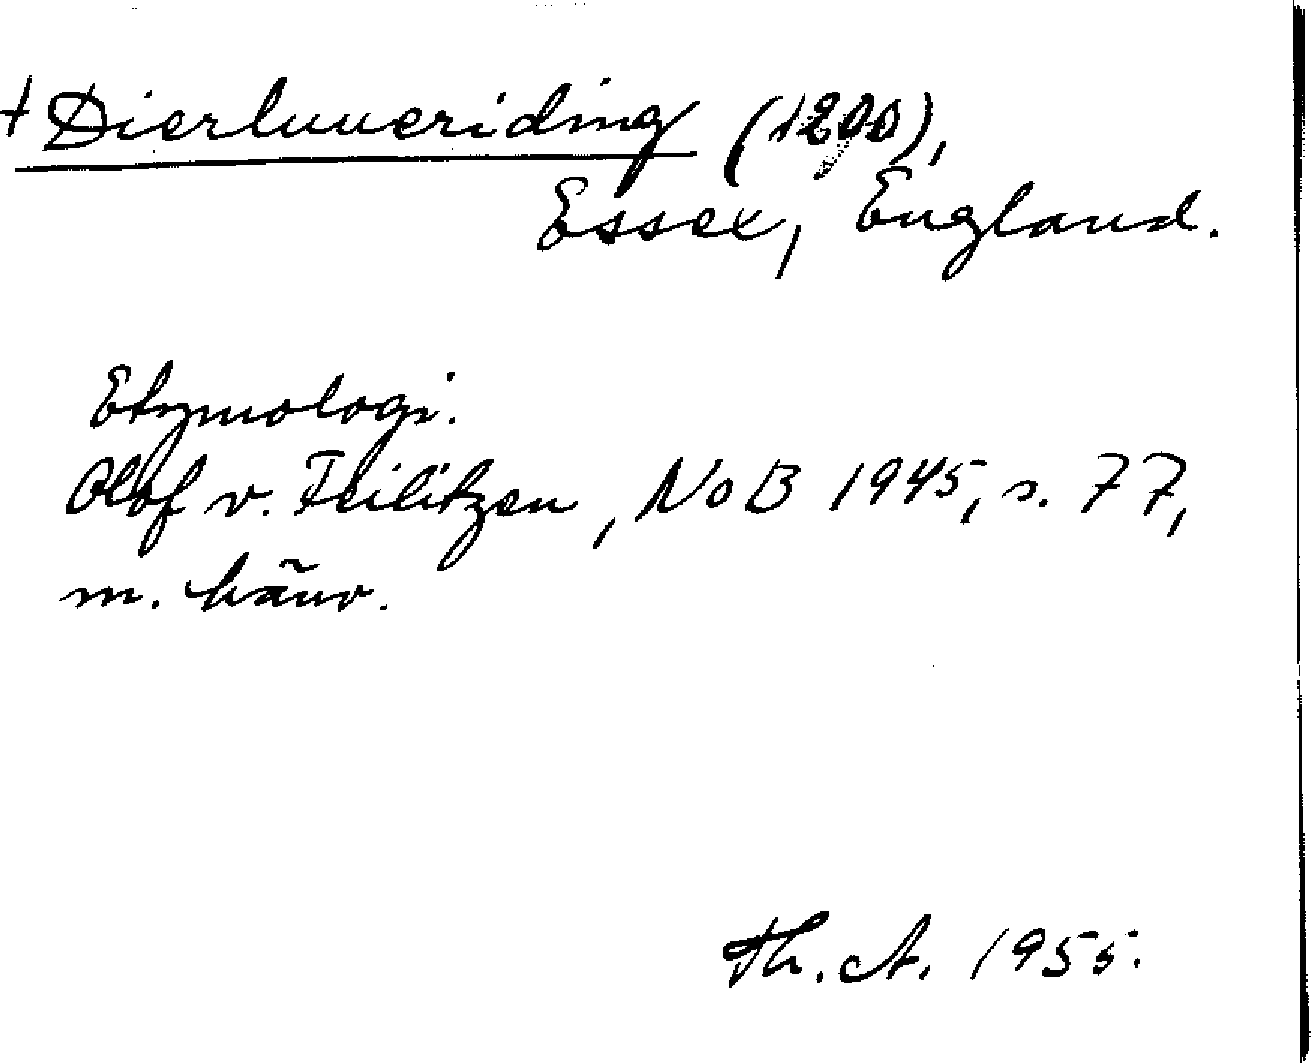 + Dierluueriding (1200),
Essex, England.
Etymologi.
Olof v. Feilitzen, NoB 1945, s. 77,
m. hänv.
Th. A. 1955.